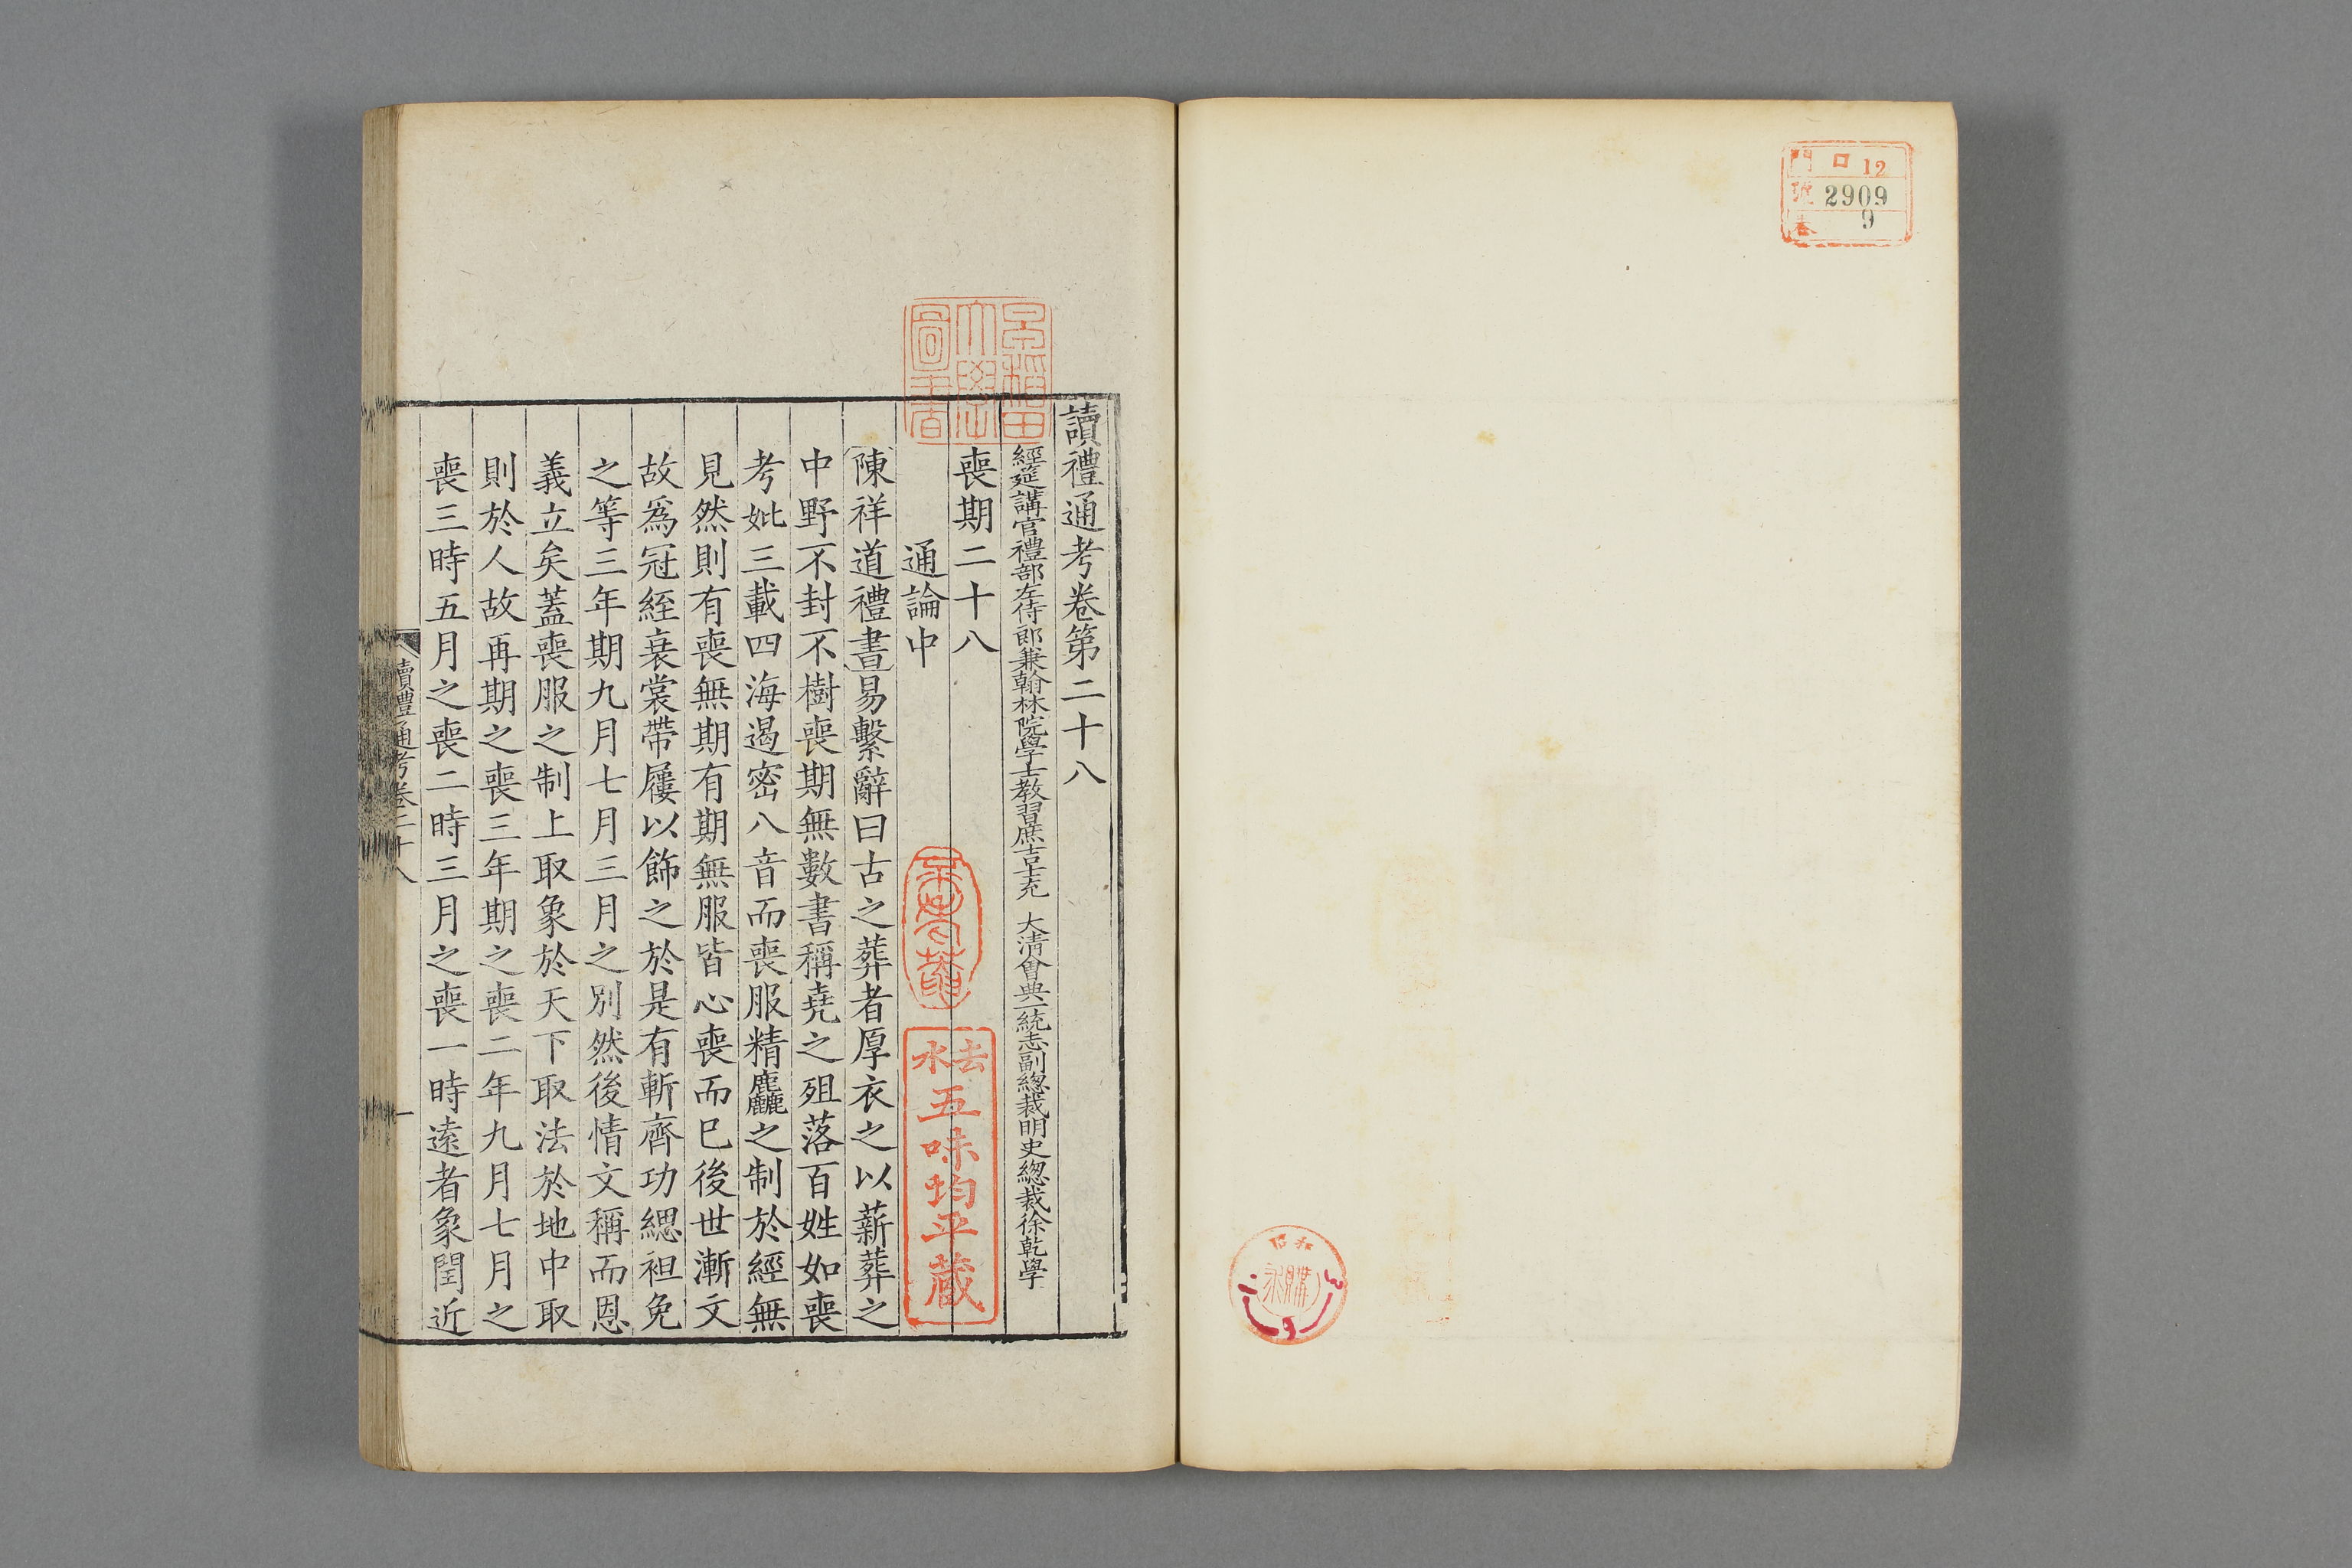 門 口 12
號 2909
卷 9
早稻田
大學
圖書
讀禮通考卷第二十八
經筵講官禮部左侍郎兼翰林院學士教習庶吉士充 大清會典一統志副總裁明史總裁徐乾學
喪期二十八
通論中
陳祥道禮書易繫辭曰古之葬者厚衣之以薪葬之
中野不封不樹喪期無數書稱堯之殂落百姓如喪
考妣三載四海遏密八音而喪服精麤之制於經無
見然則有喪無期有期無服皆心喪而已後世漸文
故爲冠絰衰裳帶屨以飾之於是有斬齊功緦袒免
之等三年期九月七月三月之別然後情文稱而恩
義立矣葢喪服之制上取象於天下取法於地中取
則於人故再期之喪三年期之喪二年九月七月之
喪三時五月之喪二時三月之喪一時遠者象閏近
讀禮通考卷二十八
一
去水五味均平藏
昭和
購求